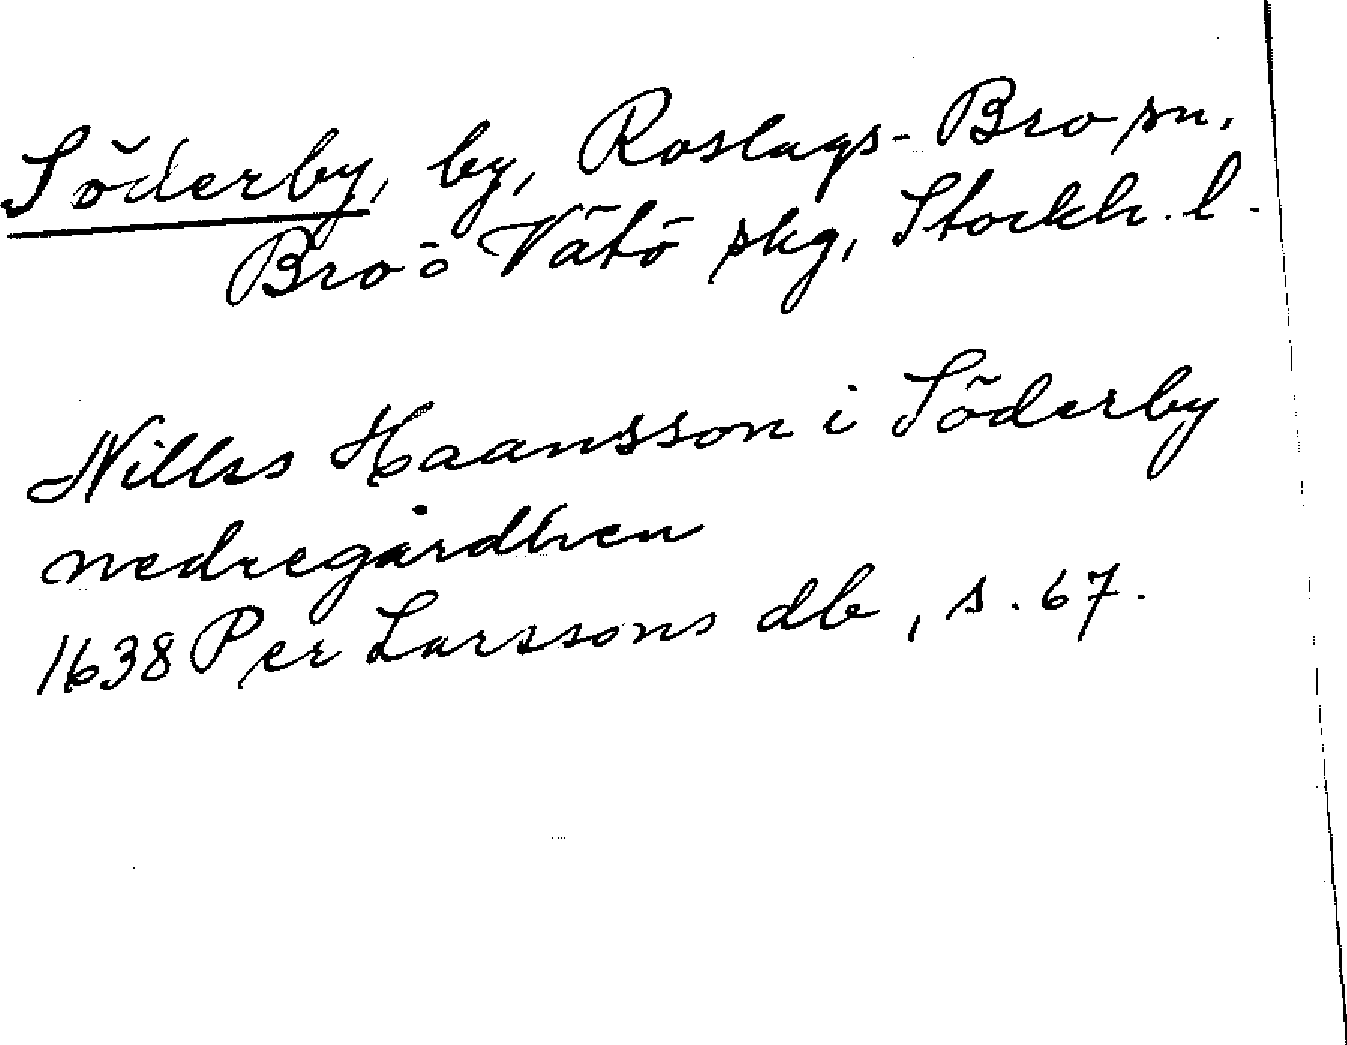 Söderby, by, Roslags-Bro sn,
Bro o Vätö skg, Stockh. l.
Nills Haansson i Söderby
nedregårdhen
1638 Per Larssons db, s. 67.